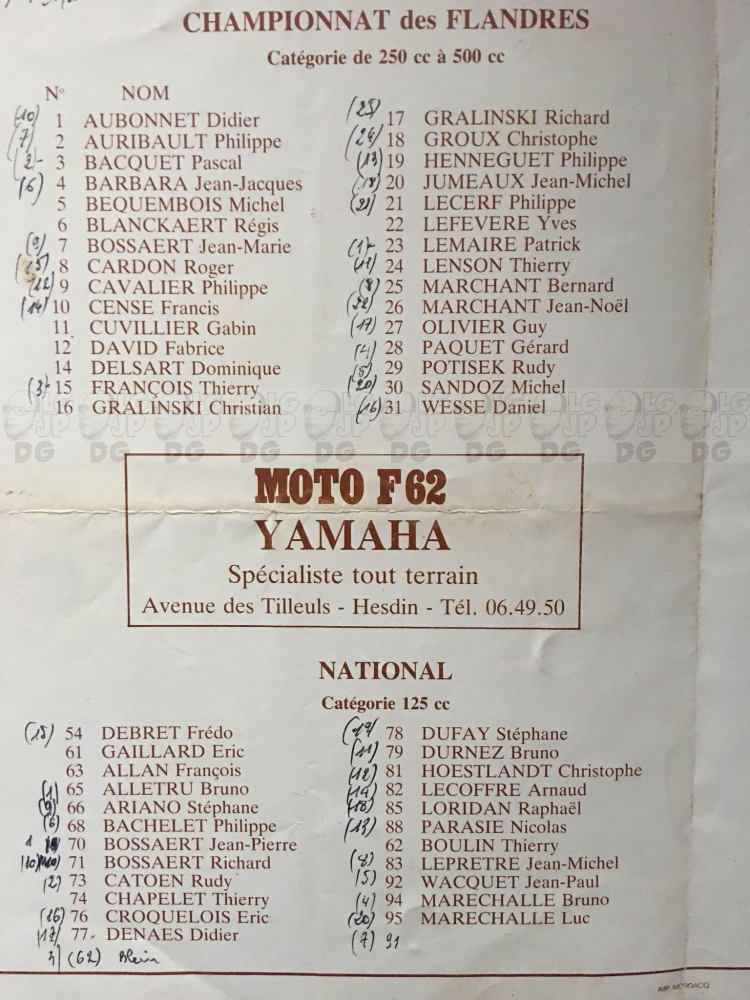 CHAMPIONNAT des FLANDRES
Catégorie de 250 cc à 500 cc
N° NOM
(10) 1 AUBONNET Didier
(7) 2 AURIBAULT Philippe
(2) 3 BACQUET Pascal
(6) 4 BARBARA Jean-Jacques
5 BEQUEMBOIS Michel
6 BLANCKAERT Régis
(9) 7 BOSSAERT Jean-Marie
8 CARDON Roger
(12) 9 CAVALIER Philippe
(14) 10 CENSE Francis
11 CUVILLIER Gabin
12 DAVID Fabrice
14 DELSART Dominique
(3) 15 FRANÇOIS Thierry
16 GRALINSKI Christian
(25) 17 GRALINSKI Richard
18 GROUX Christophe
(13) 19 HENNEGUET Philippe
(18) 20 JUMEAUX Jean-Michel
21 LECERF Philippe
22 LEFEVERE Yves
(1) 23 LEMAIRE Patrick
(11) 24 LENSON Thierry
(8) 25 MARCHANT Bernard
(22) 26 MARCHANT Jean-Noël
(17) 27 OLIVIER Guy
(4) 28 PAQUET Gérard
(5) 29 POTISEK Rudy
(20) 30 SANDOZ Michel
(16) 31 WESSE Daniel
LG JP DG
MOTO F 62
YAMAHA
Spécialiste tout terrain
Avenue des Tilleuls - Hesdin - Tél. 06.49.50
NATIONAL
Catégorie 125 cc
(15) 54 DEBRET Frédo
61 GAILLARD Eric
63 ALLAN François
(1) 65 ALLETRU Bruno
(9) 66 ARIANO Stéphane
(6) 68 BACHELET Philippe
70 BOSSAERT Jean-Pierre
(10) 71 BOSSAERT Richard
(2) 73 CATOEN Rudy
74 CHAPELET Thierry
(16) 76 CROQUELOIS Eric
77 DENAES Didier
(62)
78 DUFAY Stéphane
(11) 79 DURNEZ Bruno
(12) 81 HOESTLANDT Christophe
82 LECOFFRE Arnaud
(18) 85 LORIDAN Raphaël
88 PARASIE Nicolas
62 BOULIN Thierry
(8) 83 LEPRETRE Jean-Michel
(5) 92 WACQUET Jean-Paul
(4) 94 MARECHALLE Bruno
(20) 95 MARECHALLE Luc
(7) 91
IMP. MORDACQ